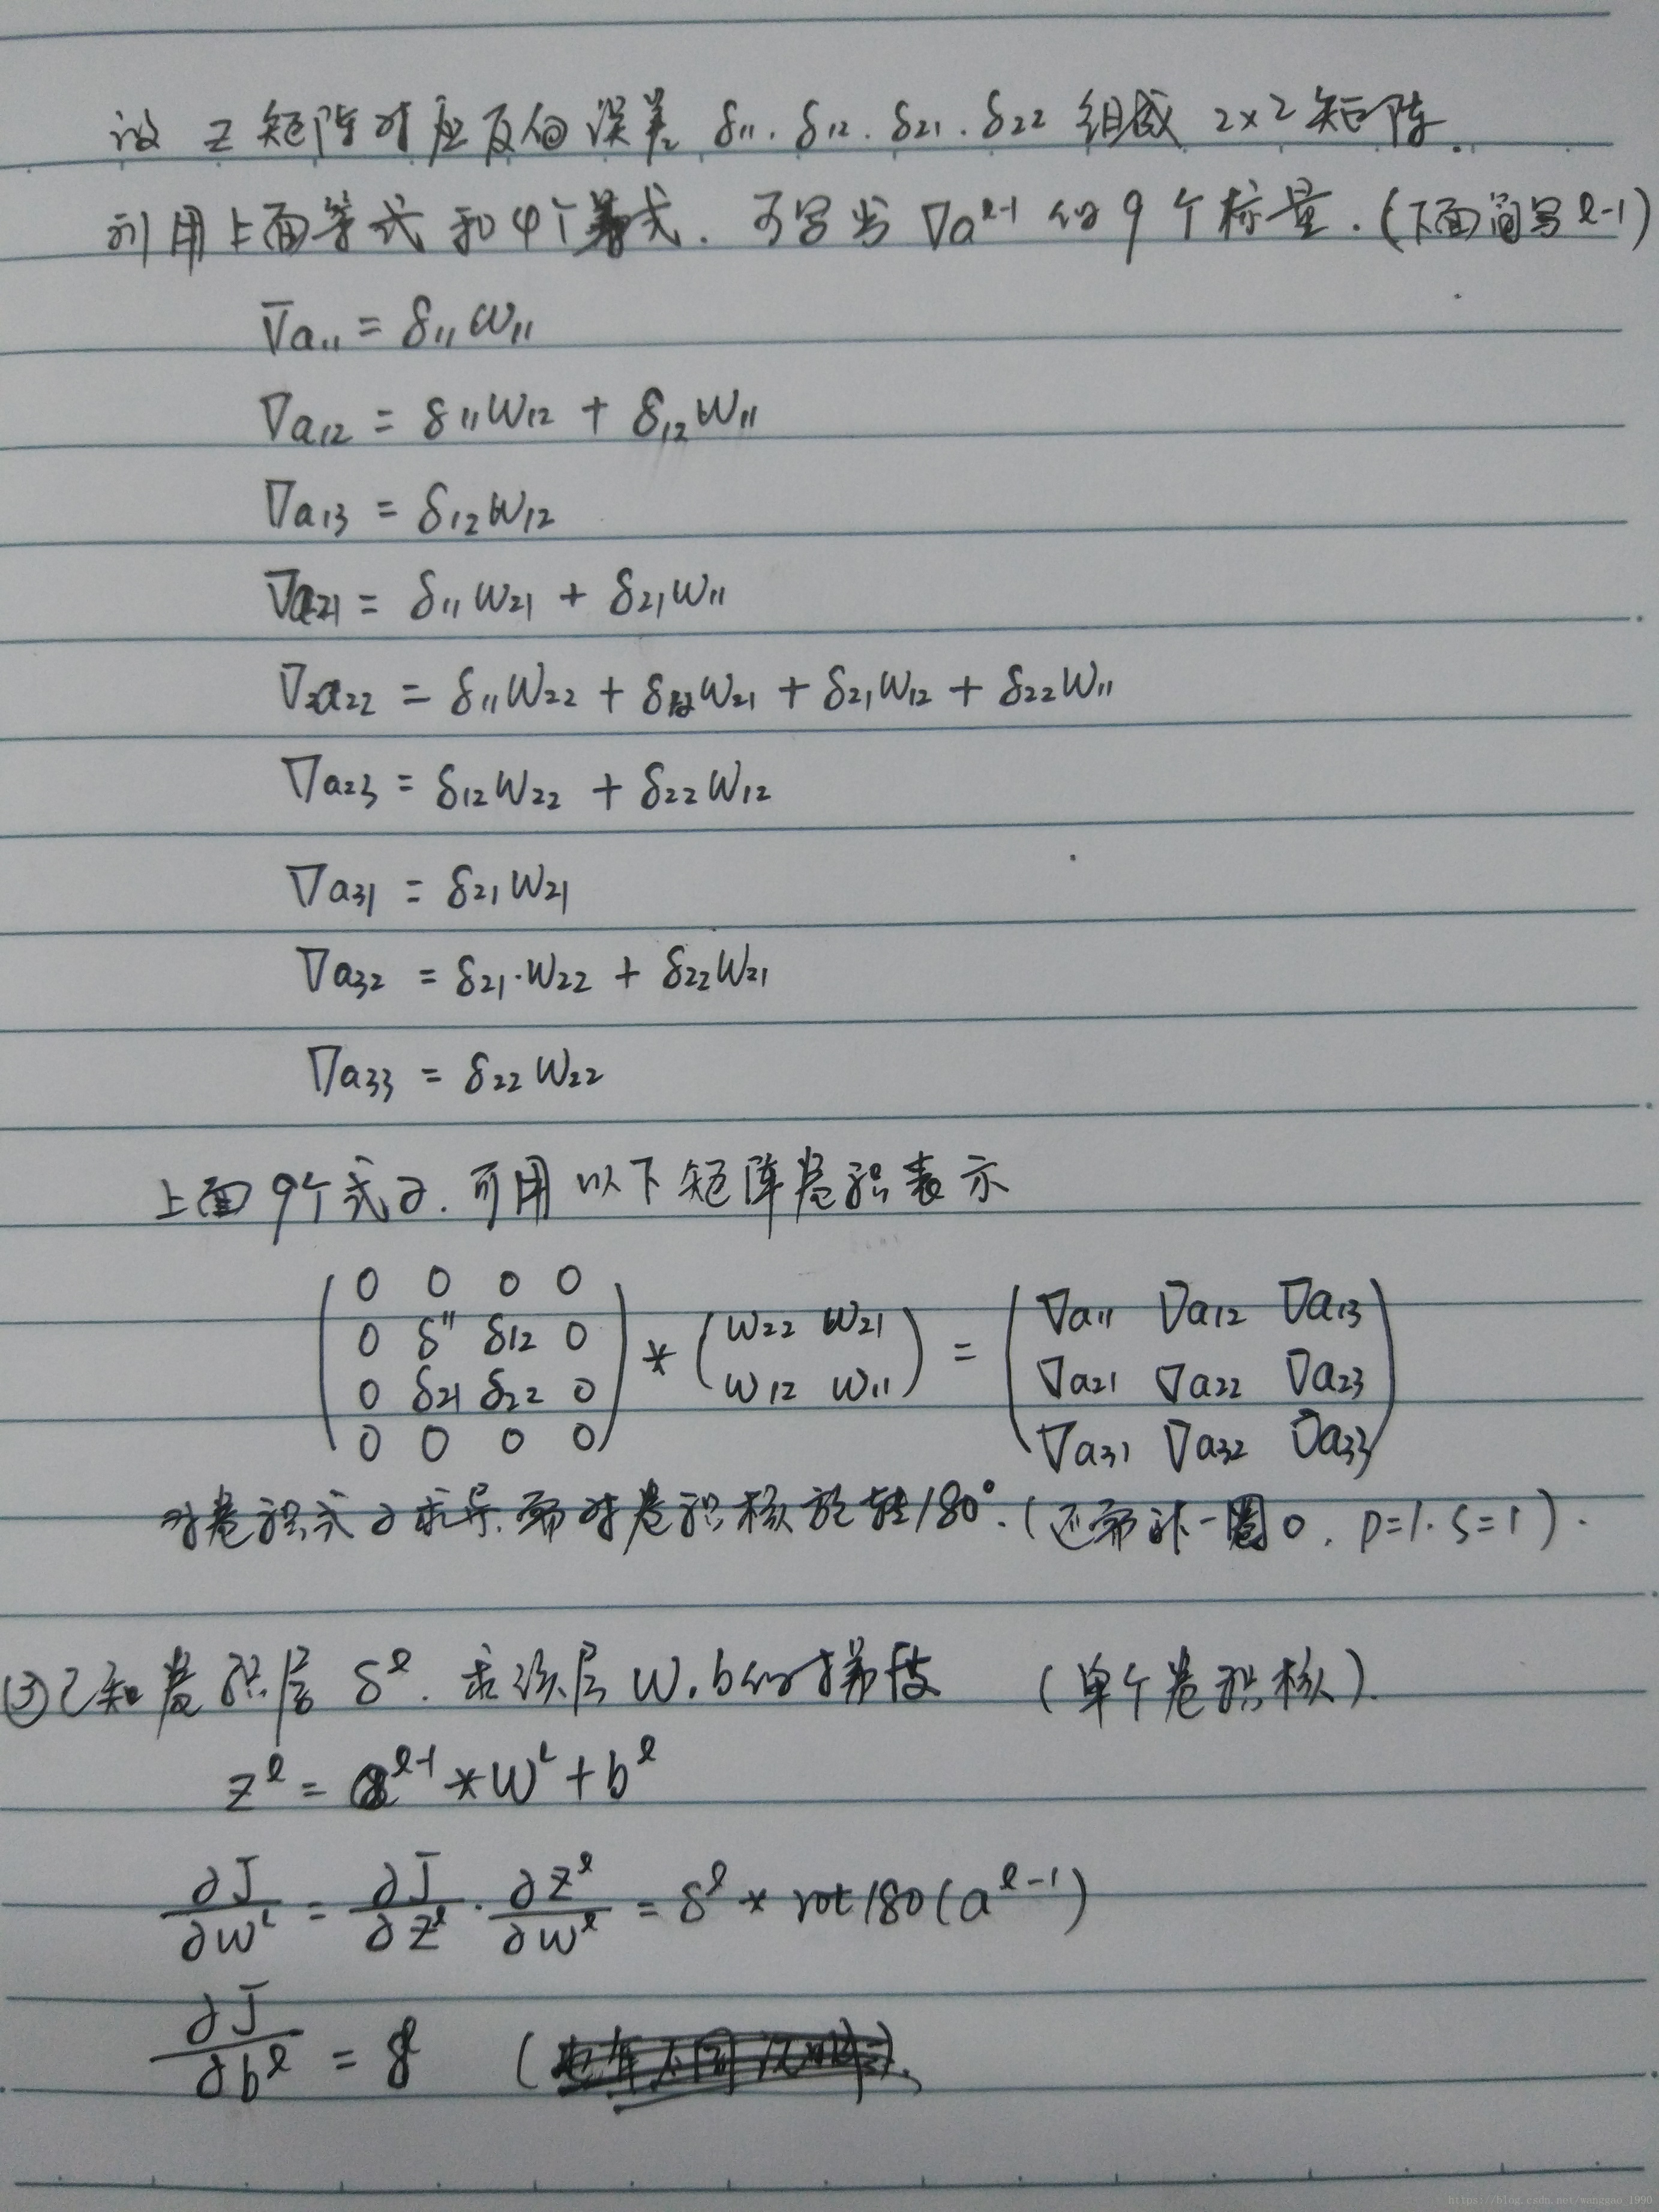 设 z 矩阵对应反向误差 δ₁₁. δ₁₂. δ₂₁. δ₂₂ 组成 2×2 矩阵.
利用上面等式和4个等式. 可写出 ∇aˡ⁻¹ 的 9 个标量. (下面简写 l-1)
∇a₁₁ = δ₁₁w₁₁
∇a₁₂ = δ₁₁w₁₂ + δ₁₂w₁₁
∇a₁₃ = δ₁₂w₁₂
∇a₂₁ = δ₁₁w₂₁ + δ₂₁w₁₁
∇a₂₂ = δ₁₁w₂₂ + δ₁₂w₂₁ + δ₂₁w₁₂ + δ₂₂w₁₁
∇a₂₃ = δ₁₂w₂₂ + δ₂₂w₁₂
∇a₃₁ = δ₂₁w₂₁
∇a₃₂ = δ₂₁·w₂₂ + δ₂₂w₂₁
∇a₃₃ = δ₂₂w₂₂
上面9个式子. 可用以下矩阵卷积表示
( 0 0 0 0 ; 0 δ₁₁ δ₁₂ 0 ; 0 δ₂₁ δ₂₂ 0 ; 0 0 0 0 ) * ( w₂₂ w₂₁ ; w₁₂ w₁₁ ) = ( ∇a₁₁ ∇a₁₂ ∇a₁₃ ; ∇a₂₁ ∇a₂₂ ∇a₂₃ ; ∇a₃₁ ∇a₃₂ ∇a₃₃ )
对卷积式子求导. 需对卷积核旋转180°. (还需补一圈0. P=1. S=1).
③已知卷积层 δˡ. 求该层 W, b的梯度 (单个卷积核).
zˡ = aˡ⁻¹ * Wˡ + bˡ
∂J/∂wˡ = ∂J/∂zˡ · ∂zˡ/∂wˡ = δˡ * rot180(aˡ⁻¹)
∂J/∂bˡ = δˡ
https://blog.csdn.net/wanggao_1990